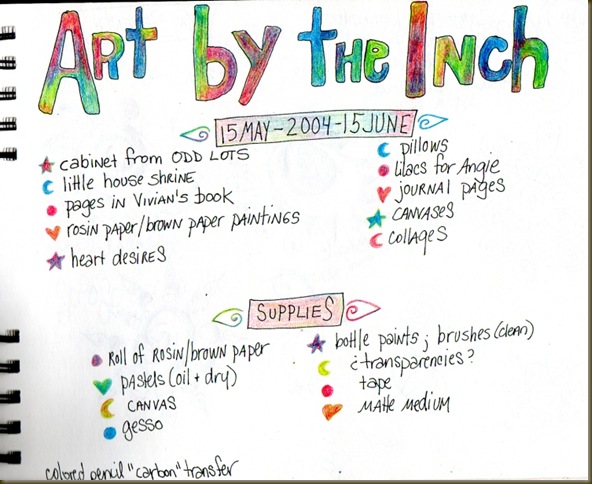 ART by the Inch
15 MAY-2004-15 JUNE
cabinet from ODD LOTS
little house SHRINE
pages in Vivian's book
rosin paper/brown paper paintings
heart desires
pillows
lilacs for Angie
journal pages
CANVASES
collages
SUPPLIES
Roll of Rosin/brown paper
pastels (oil + dry)
CANVAS
gesso
bottle paints; brushes (clean)
¿transparencies?
tape
Matte Medium
colored pencil "carbon" transfer